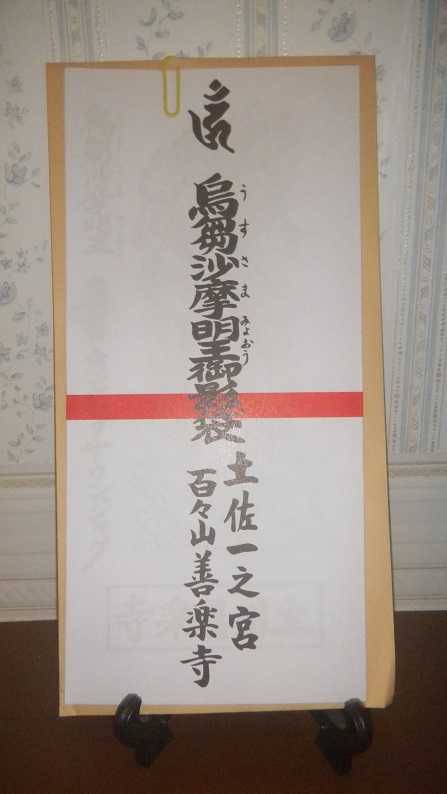 烏芻沙摩明王御影袋
うすさまみょおう
土佐一之宮
百々山善楽寺